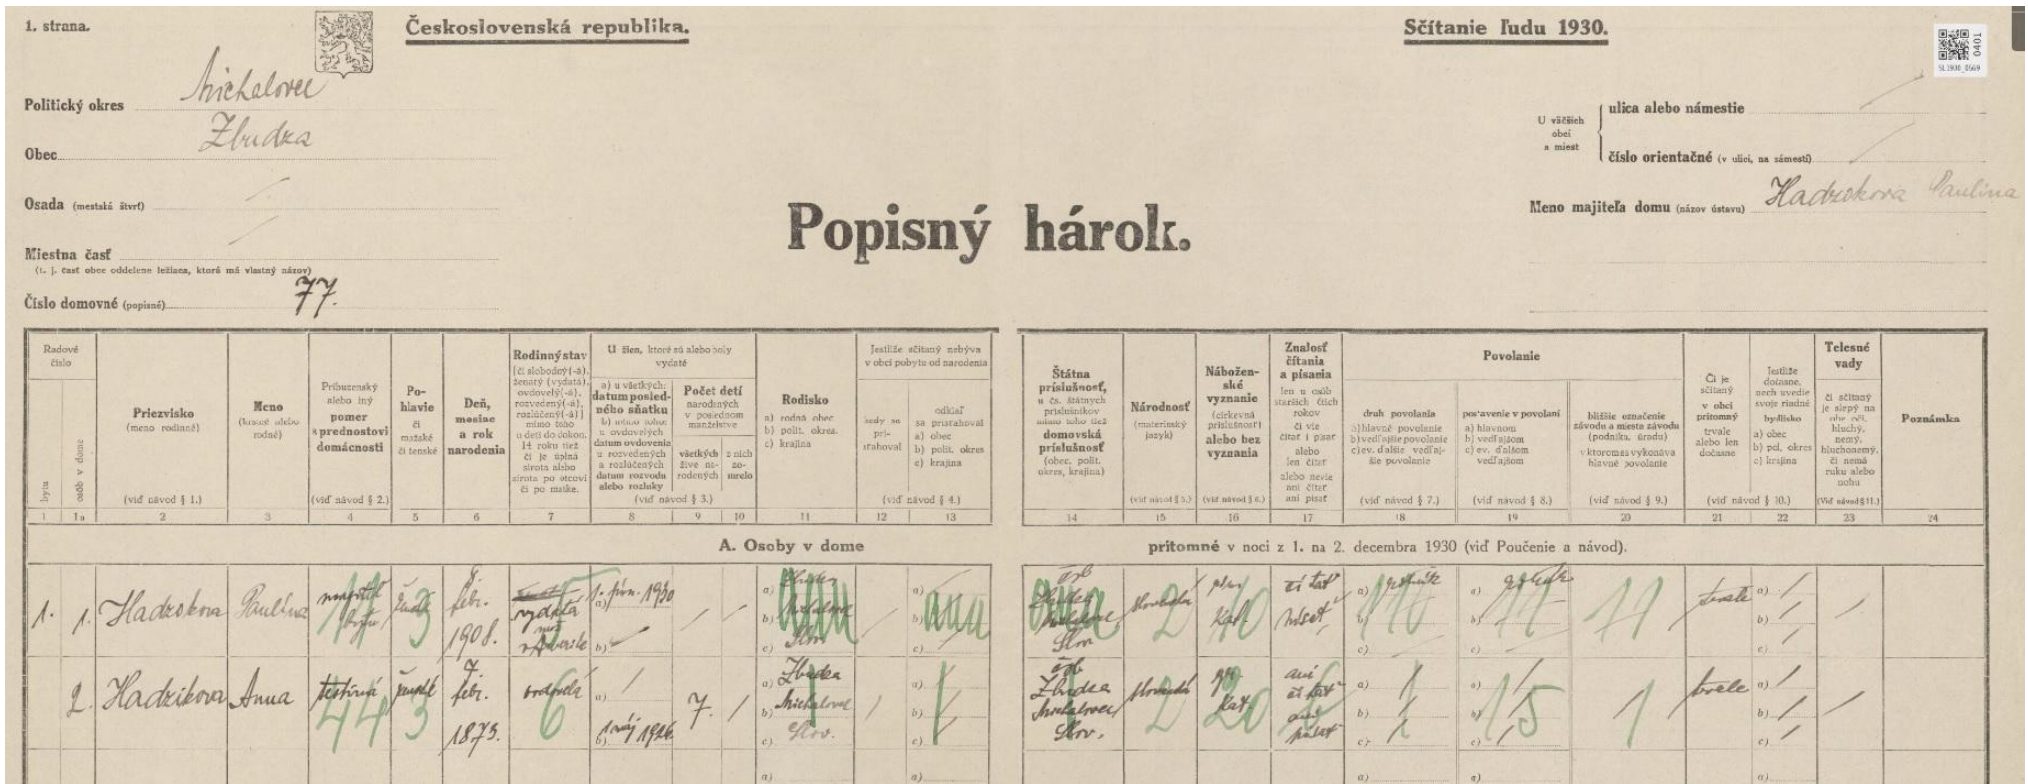 1. strana.
Československá republika.
Sčítanie ľudu 1930.
0401
SL1930_0569
Politický okres Michalovce
Obec Zbudza
Osada (mestská štvrť)
Miestna časť
(t. j. časť obce oddelene ležiaca, ktorá má vlastný názov)
Číslo domovné (popisné) 77.
U väčších
obcí
a miest
ulica alebo námestie
číslo orientačné (v ulici, na námestí)
Meno majiteľa domu (názov ústavu) Hadzokova Paulina
Popisný hárok.
Radové
číslo
bytu
osôb v dome
Priezvisko
(meno rodinné)
(viď návod § 1.)
Meno
(krstné alebo
rodné)
Príbuzenský
alebo iný
pomer
k prednostovi
domácnosti
(viď návod § 2.)
Po-
hlavie
či
mužské
či ženské
Deň,
mesiac
a rok
narodenia
Rodinný stav
[či slobodný(-á),
ženatý (vydatá),
ovdovelý(-á),
rozvedený(-á),
rozlúčený(-á)]
mimo toho
u detí do dokon.
14 roku tiež
či je úplná
sirota alebo
sirota po otcovi
či po matke.
U žien, ktoré sú alebo boly
vydaté
a) u všetkých:
datum posled-
ného sňatku
b) mimo toho:
u ovdovelých
datum ovdovenia
u rozvedených
a rozlúčených
datum rozvodu
alebo rozluky
Počet detí
narodných
v poslednom
manželstve
všetkých
živе na-
rodených
z nich
zo-
mrelo
(viď návod § 3.)
Rodisko
a) rodná obec
b) polit. okres
c) krajina
Jestliže sčítaný nebýva
v obci pobytu od narodenia
kedy sa
pri-
sťahoval
odkiaľ
sa prisťahoval
a) obec
b) polit. okres
c) krajina
(viď návod § 4.)
Štátna
príslušnosť,
u čs. štátnych
príslušníkov
mimo toho tiež
domovská
príslušnosť
(obec, polit.
okres, krajina)
Národnosť
(materinský
jazyk)
(viď návod § 5.)
Nábožen-
ské
vyznanie
(cirkevná
príslušnosť)
alebo bez
vyznania
(viď návod § 6.)
Znalosť
čítania
a písania
len u osôb
starších šesť
rokov
či vie
čítať i písať
alebo
len čítať
alebo nevie
ani čítať
ani písať
Povolanie
druh povolania
a) hlavné povolanie
b) vedľajšie povolanie
c) ev. ďalšie vedľaj-
šie povolanie
(viď návod § 7.)
postavenie v povolaní
a) hlavnom
b) vedľajšom
c) ev. ďalšom
vedľajšom
(viď návod § 8.)
bližšie označenie
závodu a miesta závodu
(podniku, úradu)
v ktorom sa vykonáva
hlavné povolanie
(viď návod § 9.)
Či je
sčítaný
v obci
prítomný
trvale
alebo len
dočasne
Jestliže
dočasne,
nech uvedie
svoje riadné
bydlisko
a) obec
b) pol. okres
c) krajina
(viď návod § 10.)
Telesné
vady
či sčítaný
je slepý na
obe oči,
hluchý,
nemý,
hluchonemý,
či nemá
ruku alebo
nohu
(Viď návod § 11.)
Poznámka
1 1a 2 3 4 5 6 7 8 9 10 11 12 13 14 15 16 17 18 19 20 21 22 23 24
A. Osoby v dome prítomné v noci z 1. na 2. decembra 1930 (viď Poučenie a návod).
1. 1. Hadzokova Paulína
febr.
1908.
vydatá
a) 1930
b)
a) Zbudza
b) Michalovce
c) Slov
a)
b)
c)
Slov
slovenská
2
kat.
čítať
písať
a) roľník
b)
c)
a)
b)
c)
11
trvale
a)
b)
c)
2. Hadzikova Anna
44
ženské
3
7.
febr.
1873.
ovdovelá
6
a)
b) 1. máj 1926
7.
a) Zbudza
b) Michalovce
c) Slov.
a)
b)
c)
čsl.
Zbudza
Michalovce
Slov.
slovenská
2
gr.
kat
20
ani
čítať
ani
písať
a)
b)
c)
a)
b)
c)
15
1
trvale
a)
b)
c)
a)
a)
a)
a)
a)